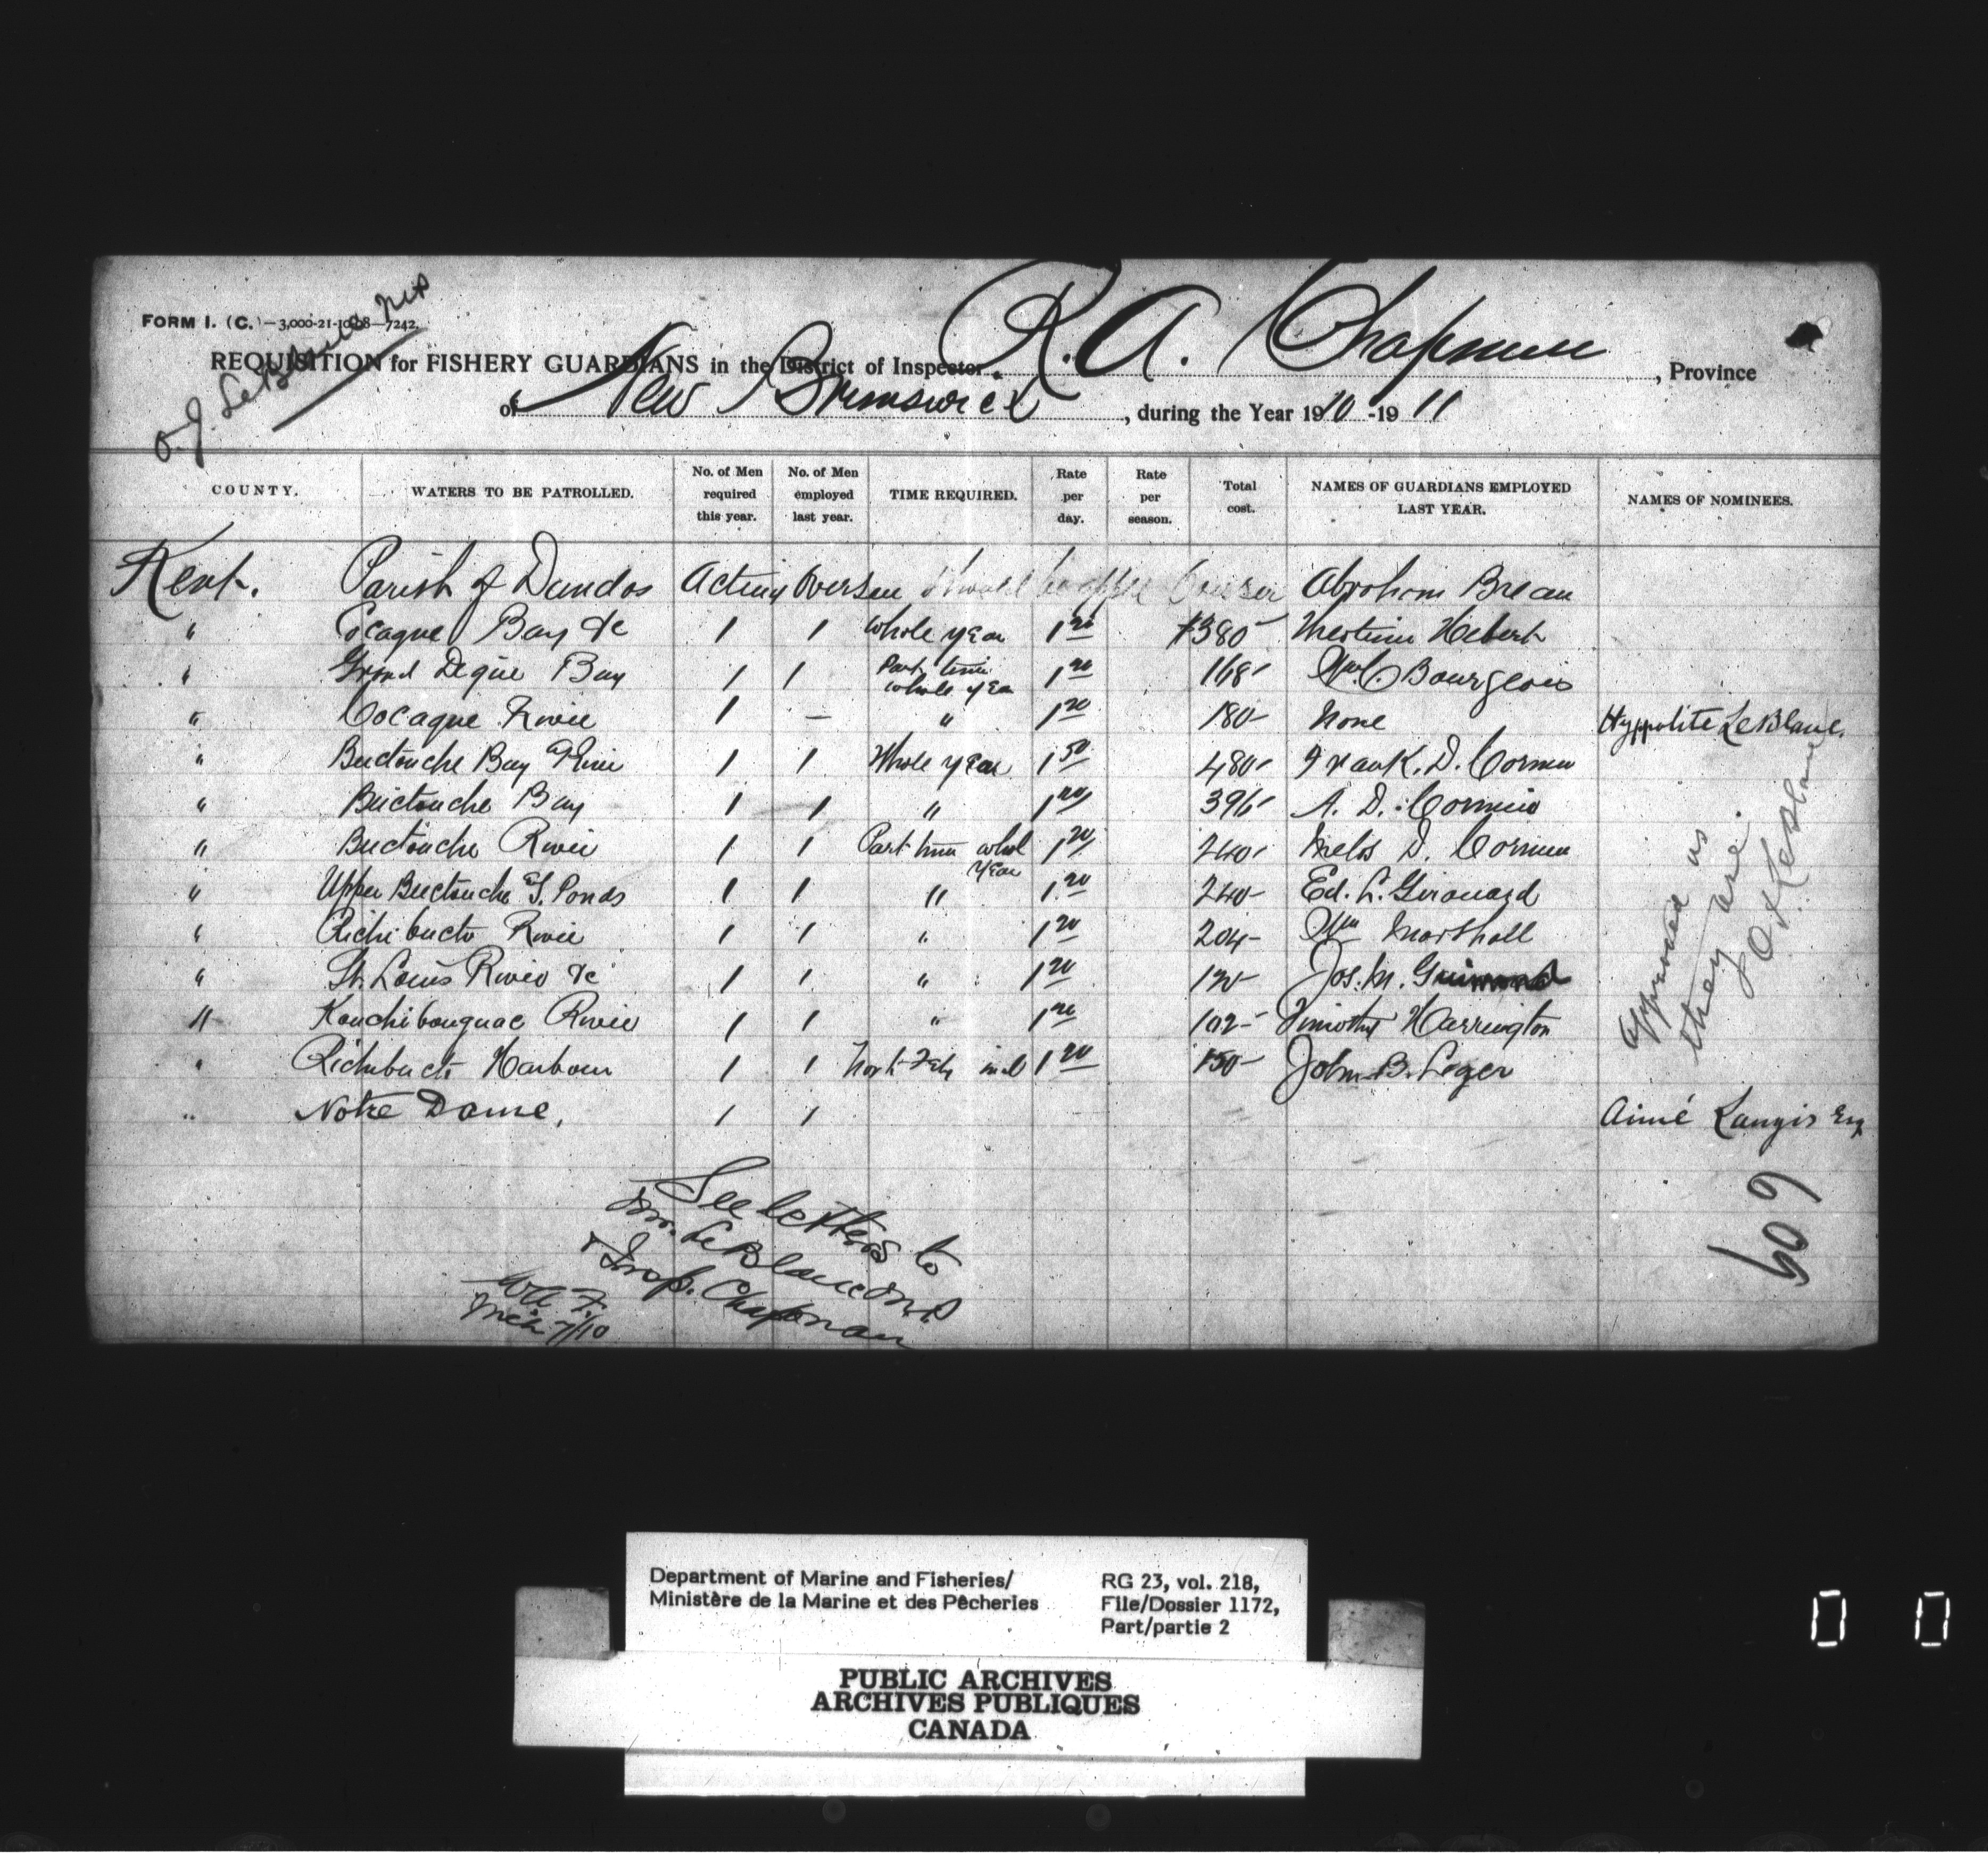 FORM I. (C.)—3,000-21-10-08—7242.
O. J. LeBlanc M.P.
REQUISITION for FISHERY GUARDIANS in the District of Inspector R. A. Chapman, Province
of New Brunswick, during the Year 1910-1911
COUNTY. WATERS TO BE PATROLLED. No. of Men required this year. No. of Men employed last year. TIME REQUIRED. Rate per day. Rate per season. Total cost. NAMES OF GUARDIANS EMPLOYED LAST YEAR. NAMES OF NOMINEES.
Kent. Parish of Dundas Acting Overseer Abraham Breau
" Cocague Bay &c 1 1 Whole year 1 20 $380 Hebert
" Grand Digue Bay 1 1 Part time whole year 1 20 168 Wm. C. Bourgeois
" Cocague River 1 — " 1 20 180 None Hyppolite LeBlanc.
" Buctouche Bay & River 1 1 Whole year 1 50 480 Frank. D. Cormier
" Buctouche Bay 1 1 " 1 20 396 A. D. Cormier
" Buctouche River 1 1 Part time whole year 1 20 240 D. Cormier
" Upper Buctouche & S. Ponds 1 1 " 1 20 240 Ed. L. Girouard
" Richibucto River 1 1 " 1 20 204 Wm Marshall
" St. Louis River &c 1 1 " 1 20 120 Jos. M. Guimond
" Kouchibouguac River 1 1 " 1 20 102 Timothy Harrington
" Richibucto Harbour 1 1 1 20 150 John B. Leger
" Notre Dame, 1 1 Aimé Langis Esq
approved as
they are.
O J LeBlanc
609
See letters to
Mr. LeBlanc M.P.
& Insp. Chapman
Mch 7/10
Department of Marine and Fisheries/
Ministère de la Marine et des Pêcheries
RG 23, vol. 218,
File/Dossier 1172,
Part/partie 2
PUBLIC ARCHIVES
ARCHIVES PUBLIQUES
CANADA
0 0